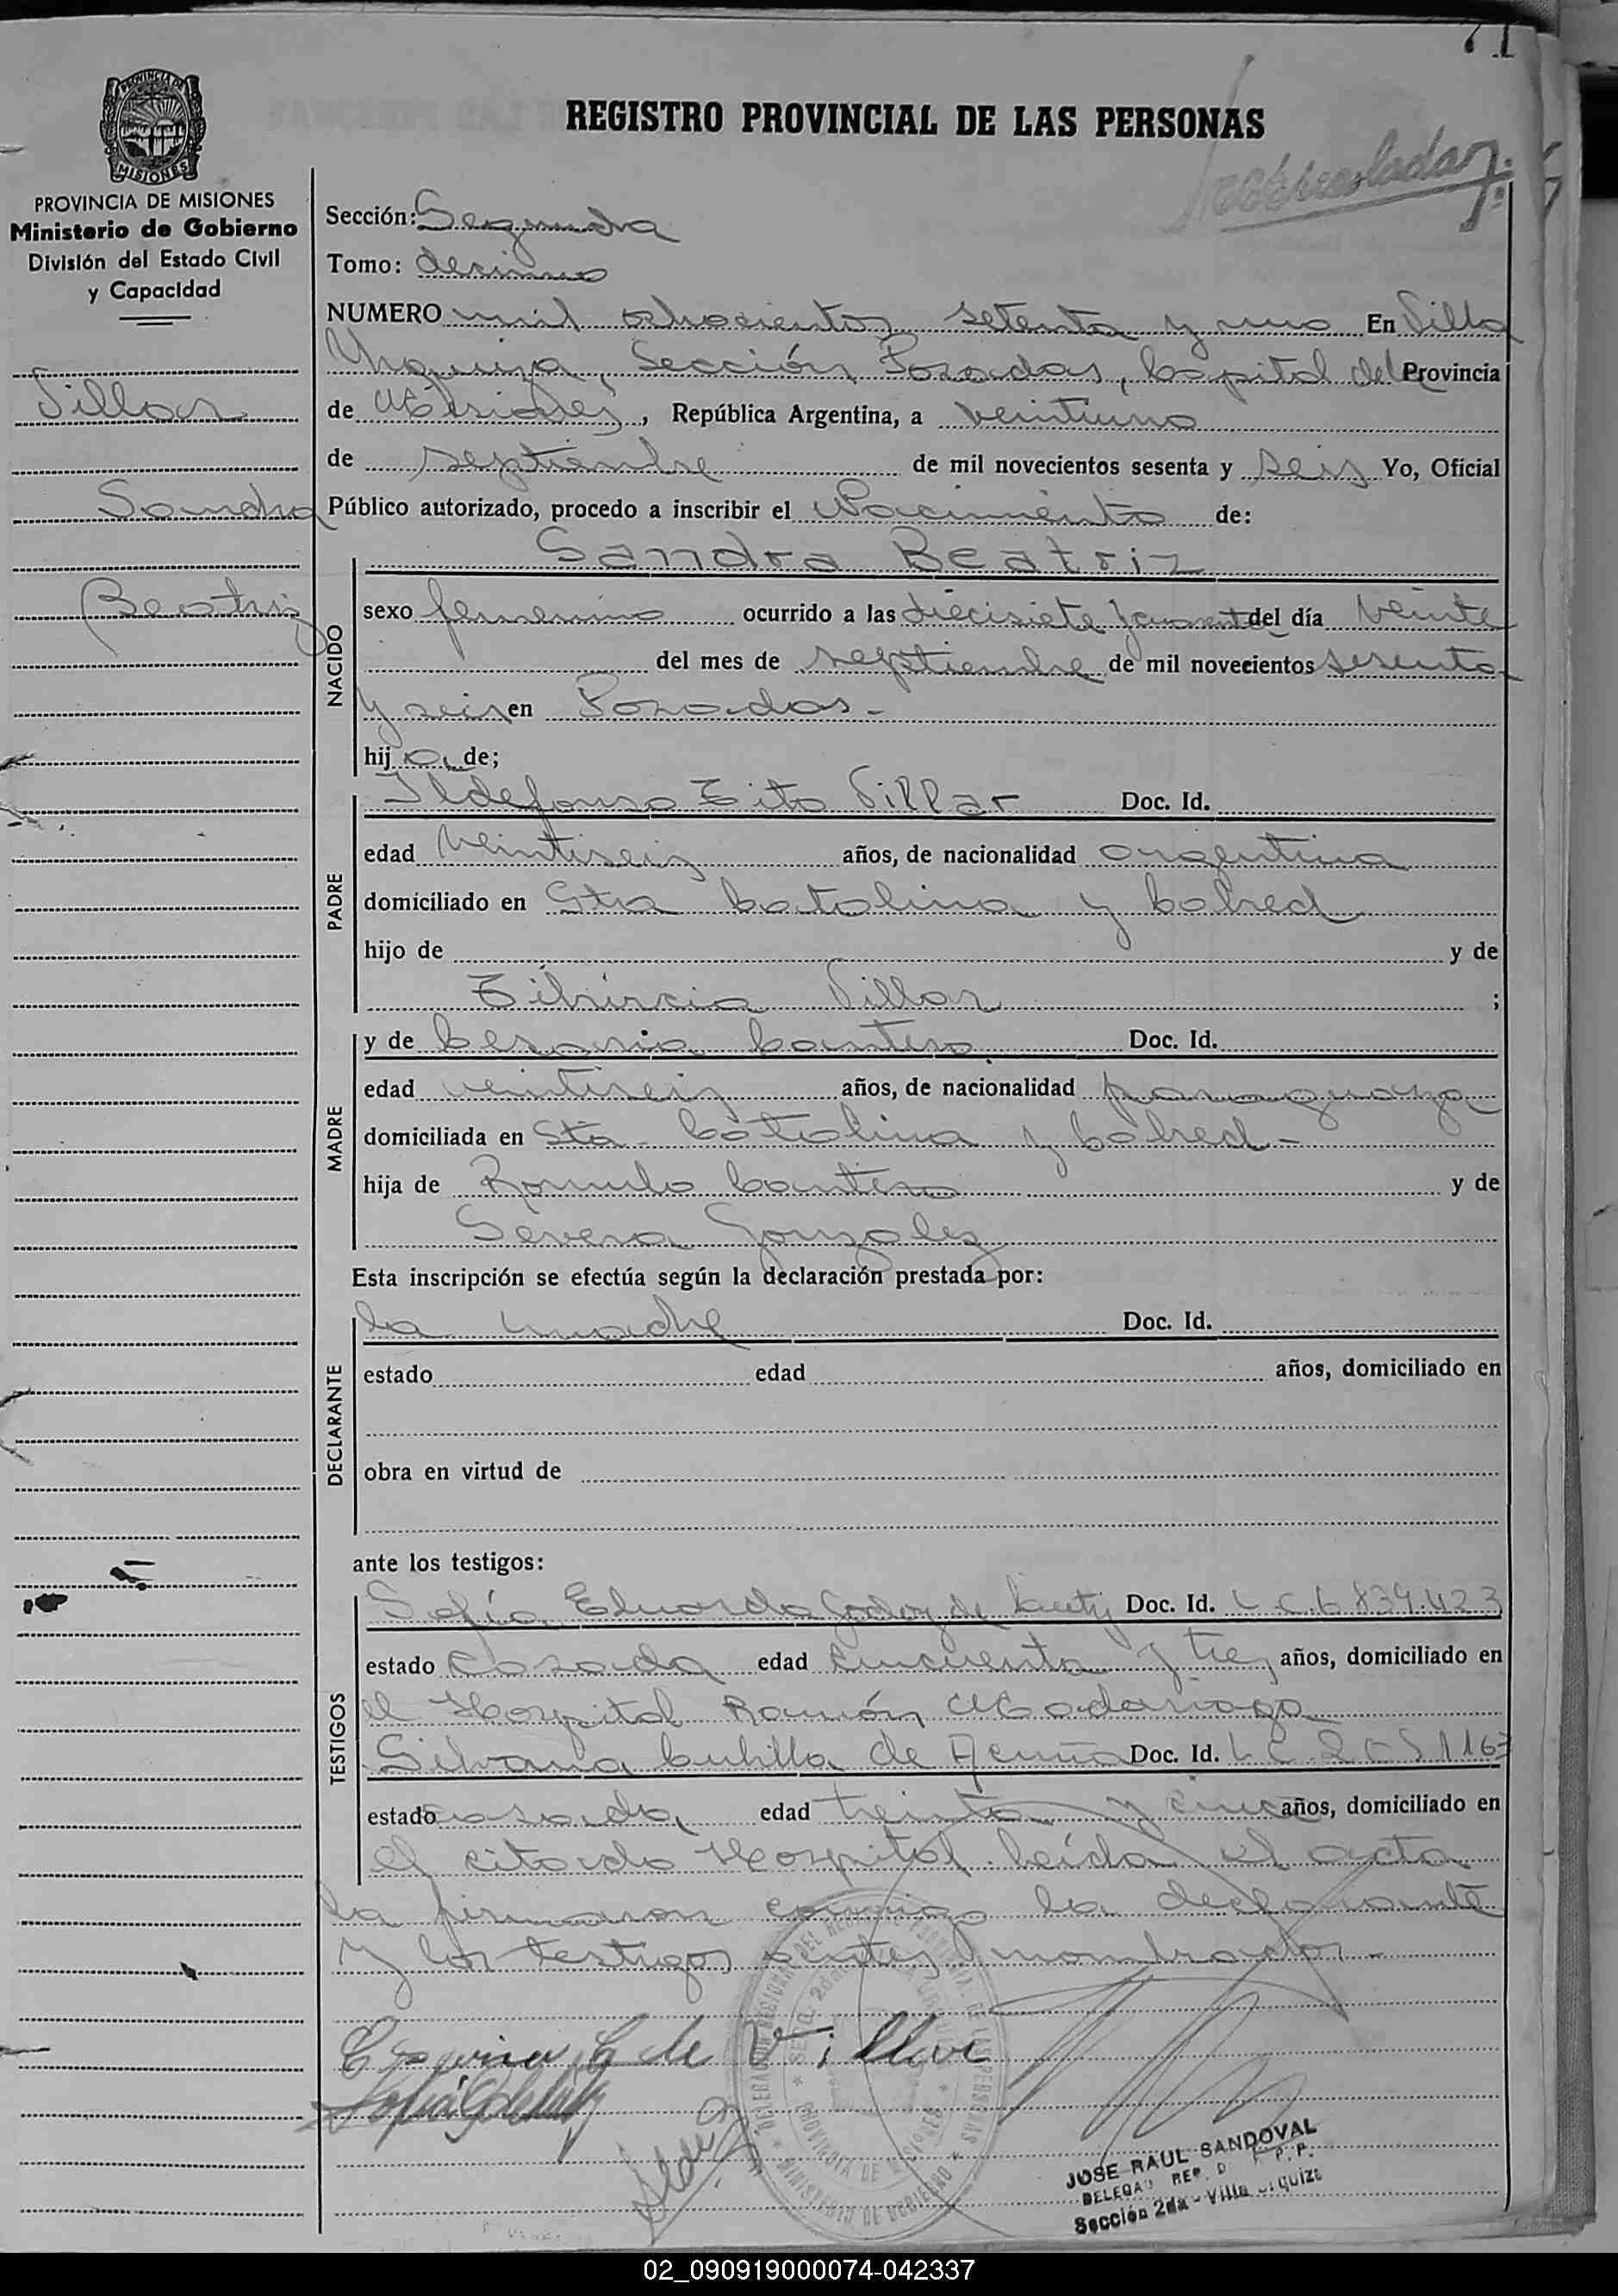 71
REGISTRO PROVINCIAL DE LAS PERSONAS
PROVINCIA DE MISIONES
Ministerio de Gobierno
División del Estado Civil
y Capacidad
Villar
Sandra
Beatriz
Sección: Segunda
Tomo: decimo
NUMERO mil ochocientos setenta y uno En Villa
Urquiza, Sección Posadas, Capital de la Provincia
de Misiones, República Argentina, a veintiuno
de septiembre de mil novecientos sesenta y seis Yo, Oficial
Público autorizado, procedo a inscribir el Nacimiento de:
NACIDO
Sandra Beatriz
sexo femenino ocurrido a las diecisiete y cuarenta del día veinte
del mes de septiembre de mil novecientos sesenta
y seis en Posadas.-
hija de;
PADRE
Ildefonso Tito Villar Doc. Id.
edad veintiseis años, de nacionalidad argentina
domiciliado en Sta Catalina y
hijo de y de
Tiburcia Villar ;
MADRE
y de Cesaria Cantero Doc. Id.
edad veintiseis años, de nacionalidad paraguaya
domiciliada en Sta. Catalina y
hija de Romulo Cantero y de
Severa Gonzalez
Esta inscripción se efectúa según la declaración prestada por:
DECLARANTE
la madre Doc. Id.
estado edad años, domiciliado en
obra en virtud de
ante los testigos:
TESTIGOS
Sofía Eduarda Godoy de Doc. Id. L C. 6 839.423
estado casada edad cincuenta y tres años, domiciliado en
el Hospital Ramón Madariaga
Silvana de Acuña Doc. Id. L C.
estado casada edad treinta y cinco años, domiciliado en
el citado Hospital. Leída el acta
la firmaron conmigo la declarante
y los testigos antes nombrados.-
C de Villar
JOSE RAUL SANDOVAL
Sección 2da - Villa Urquiza
02_090919000074-042337